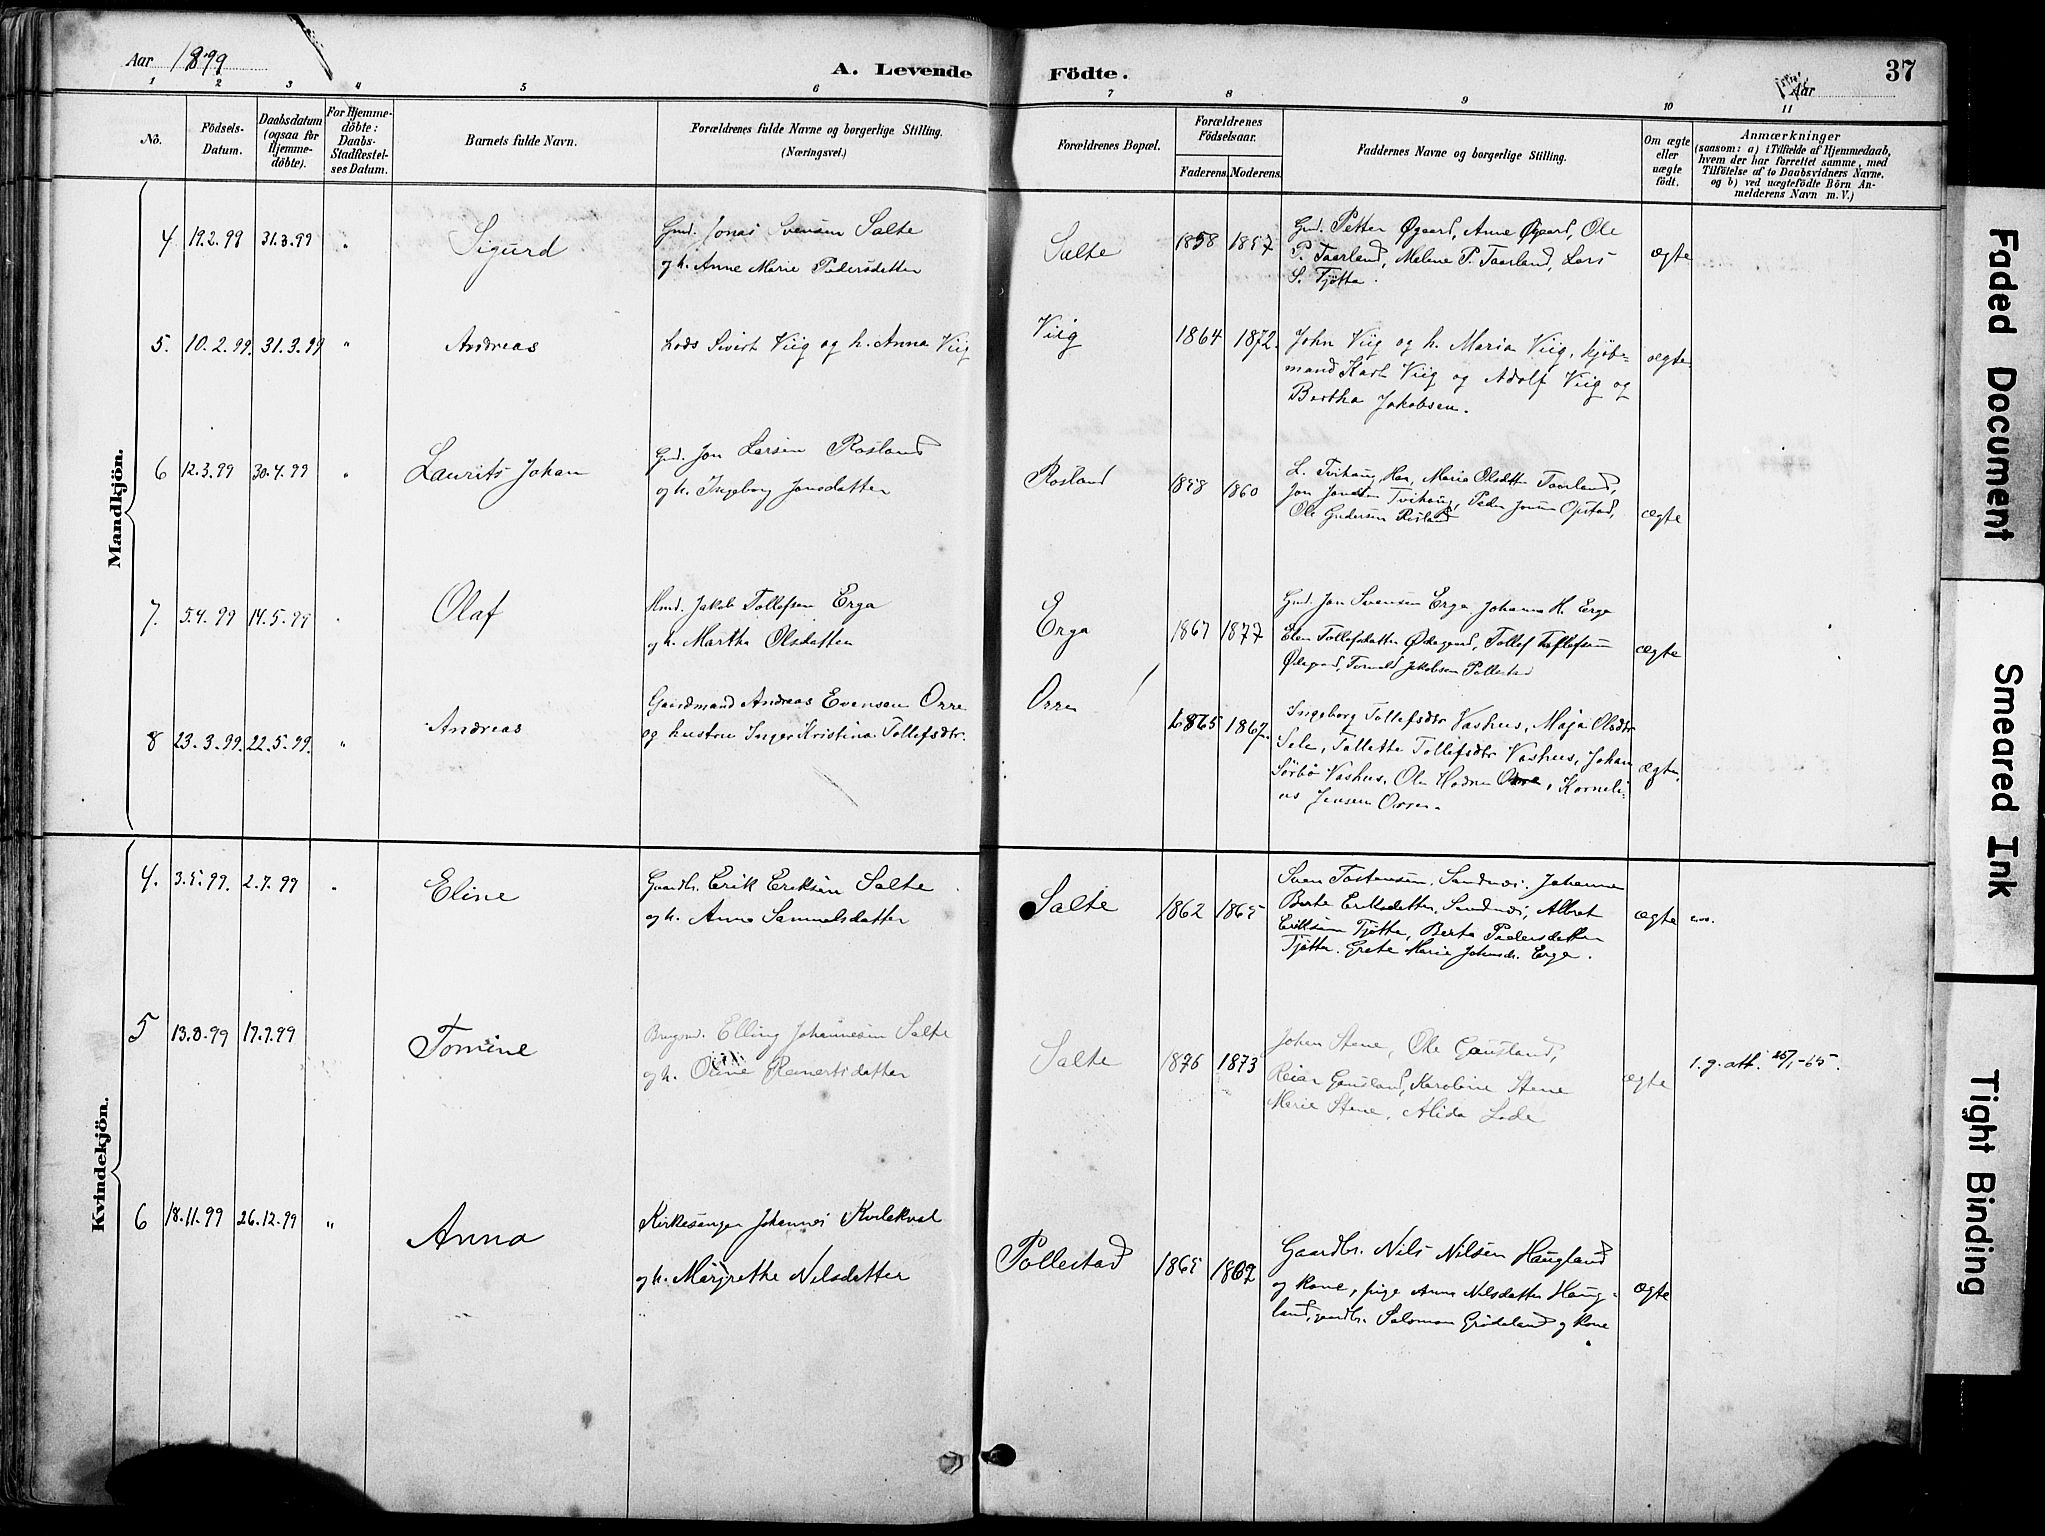 Aar 1899
A. Levende Födte.
Aar
37
1 2 3 4 5 6 7 8 9 10 11
No.
Födsels-
Datum.
Daabsdatum
(ogsaa for
Hjemme-
döbte).
For Hjemme-
döbte:
Daabs-
Stadfæstel-
ses Datum.
Barnets fulde Navn.
Forældrenes fulde Navne og borgerlige Stilling.
(Næringsvei.)
Forældrenes Bopæl.
Forældrenes
Födselsaar.
Faderens. Moderens.
Faddernes Navne og borgerlige Stilling.
Om ægte
eller
uægte
födt.
Anmærkninger
(saasom: a) i Tilfælde af Hjemmedaab,
hvem der har forrettet samme, med
Tilföielse af to Daabsvidners Navne,
og b) ved uægtefödte Börn An-
melderens Navn m. V.)
Mandkjön.
4 19.2.99 31.3.99 " Sigurd
Gmd. Jonas Svensen Salte
og h. Anne Marie Pedersdatter
Salte 1858 1857
Gmd. Petter Øgaard, Anne Øgaard, Ole
P. Taarland, Malene P. Taarland, Lars
S. Tjøtta.
ægte
5. 10.2.99. 31.3.99 " Andreas
Lods Sivert Viig og h. Anna Viig
Viig 1864 1872.
John Viig og h. Maria Viig, kjøb-
mand Karl Viig og Adolf Viig og
Bertha Jakobsen.
ægte
6 12.3.99 30.4.99 " Laurits Johan
Gmd. Jon Larsen Rosland
og h. Ingeborg Jonsdatter
Rosland 1858 1860
L. Tvihaug Haa, Maria Olsdtter Taarland,
Jon Jonsen Tvihaug, Peder Jonsen Opstad,
Ole Gudersen Rosland
ægte
7. 5.4.99 14.5.99 Olaf
Hmd. Jakob Tollefsen Erga
og h. Martha Olsdatter
Erga 1867 1877
Gmd. Jon Svensen Erga, Johanna H. Erga
Elen Tollefsdatter Ødegaard, Tollef Tollefsen
Ødegaard, Jakobsen Pollestad
ægte
8 23.3.99. 22.5.99. " Andreas
Gaardmand Andreas Evensen Orre
og hustru Inger Kristina Tollefsdtr.
Orre 1865 1867.
Ingeborg Tollefsdtr Vashus, Maja Olsdtr
Sele, Tallette Tollefsdtr Vashus, Johan
Sørbø Vashus, Ole Hodne Orre, Korneli-
us Jensen Orre.
ægte.
Kvindekjön.
4. 3.5.99. 2.7.99 Eline
Gaardbr. Erik Eriksen Salte
og h. Anna Samuelsdatter
Salte 1862 1865
Sven Tostensen, Sandnæs, Johanna
Berte Eriksdatter, Sandnæs, Albret
Eriksen Tjøtta, Berta Pedersdatter
Tjøtta. Grete Marie Johnsdr. Erga.
ægte
5 13.6.99 17.7.99 Tomine
Brugsmd. Elling Johannesen Salte
og h. Oline Reinertsdatter
Salte 1876 1873
Johan Stene, Ole Gausland,
Reiar Gausland, Karoline Stene
Marie Stene, Alida Lode
ægte 1. g. att. 25/1-65.
6 18.11.99 26.12.99 " Anna
Kirkesanger Johannes Kvilekval
og h. Margrethe Nilsdatter
Pollestad 1865 1862
Gaardbr. Nils Nilsen Haugland
og kone, pige Anna Nilsdatter Haug-
land, gaardbr. Salomon Grødeland og kone
ægte
Faded Document
Smeared Ink
Tight Binding